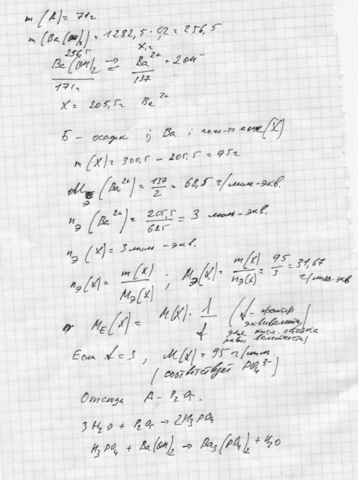 m(A) = 71г
m(Ba(OH)₂) = 1282,5 · 0,2 = 256,5
256,5 X г
Ba(OH)₂ ⇄ Ba²⁺ + 2OH⁻
171г 137
X = 205,5г Ba²⁺
Б - осадок из Ba и чего-то еще (X)
m(X) = 300,5 - 205,5 = 95г
Mэ(Ba²⁺) = 137/2 = 68,5 г/моль-экв.
nэ(Ba²⁺) = 205,5/68,5 = 3 моль-экв.
nэ(X) = 3 моль-экв.
nэ(X) = m(X)/Mэ(X) ; Mэ(X) = m(X)/nэ(X) = 95/3 = 31,67 г/моль-экв
Mэ(X) = M(X) · 1/f (f - фактор эквивалентн. для кисл. остатка равен валентности)
Если f = 3, M(X) = 95 г/моль
(соответствует PO₄³⁻)
Отсюда A - P₂O₅
3H₂O + P₂O₅ → 2H₃PO₄
H₃PO₄ + Ba(OH)₂ → Ba₃(PO₄)₂ + H₂O